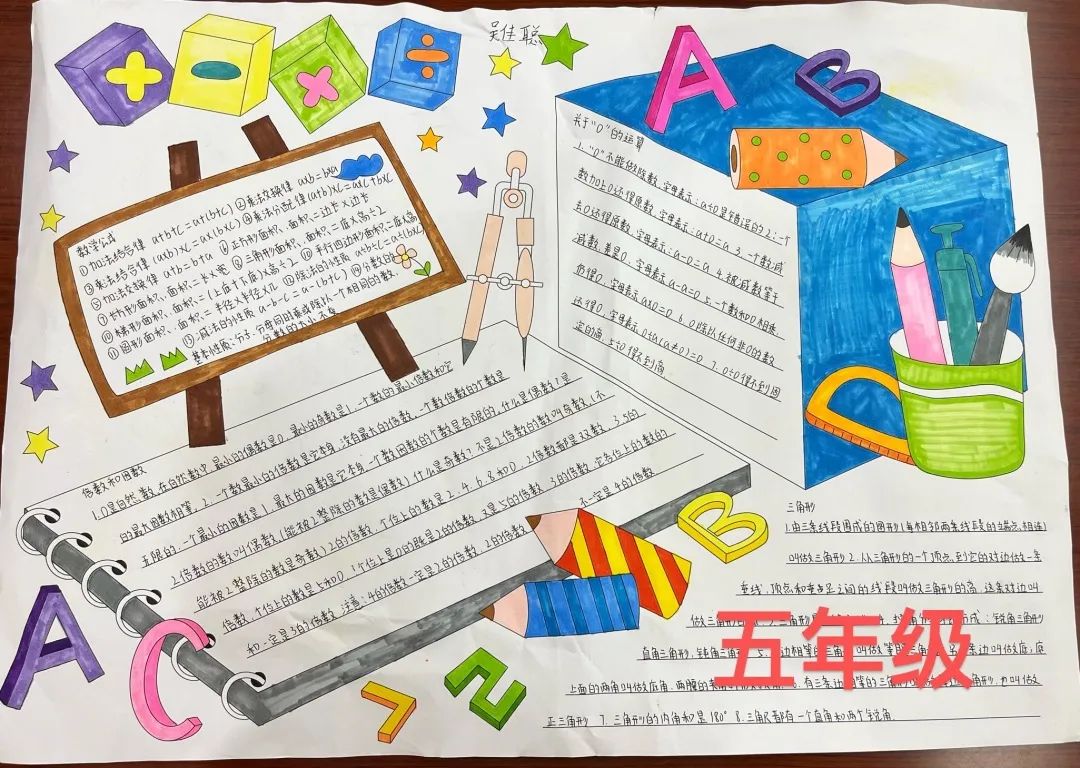 吴佳聪
数学公式
①加法结合律 a+b+c=a+(b+c) ②乘法交换律 axb=bxa
③乘法结合律 (axb)xc=ax(bxc) ④乘法分配律(a+b)xc=axc+bxc
⑤加法交换律 a+b=b+a ⑥正方形面积、面积=边长x边长
⑦长方形面积、面积=长x宽 ⑧三角形面积、面积=底x高÷2
⑩梯形面积、面积=(上底+下底)x高÷2 ⑩平行四边形面积=底x高
⑪圆形面积、面积=半径x半径x兀 ⑫除法的性质 a÷b÷c=a÷(bxc)
⑬减法的性质 a-b-c=a-(b+c) ⑭分数的
基本性质:分子、分母同时乘或除以一个相同的数
分数的大小不变
关于"0"的运算
1."0"不能做除数,字母表示:a÷0是错误的 2:一个
数加上0还得原数,字母表示:a+0=a 3.一个数减
去0还得原数,字母表示:a-0=a 4.被减数等于
减数,差是0,字母表示a-a=0 5.一个数和0相乘
仍得0,字母表示ax0=0 6.0除以任何非0的数
还得0,字母表示0÷a(a≠0)=0 7.0÷0得不到固
定的商,5÷0得不到商
倍数和因数
1.0是自然数,在自然数中,最小的偶数是0,最小的奇数是1,一个数的最小倍数和它
的最大因数相等,2.一个数最小的倍数是它本身,没有最大的倍数,一个数倍数的个数是
无限的,一个最小的因数是1,最大的因数是它本身,一个数因数的个数是有限的,什么是偶数?是
2倍数的数叫偶数(能被2整除的数是偶数)什么是奇数?不是2倍数的数叫奇数(不
能被2整除的数是奇数)2的倍数,个位上的数是2.4.6.8和0,2倍数都是双数,3.5的
倍数,个位上的数是5和0,个位上是0的既是2的倍数,又是5的倍数,3的倍数,它各位上的数的
和一定是3的倍数,注意:4的倍数一定是2的倍数,2的倍数不一定是4的倍数
三角形
1.由三条线段围成的图形(每相邻两条线段的端点相连)
叫做三角形 2.从三角形的一个顶点,到它的对边做一条
垂线,顶点和垂足之间的线段叫做三角形的高,这条对边叫
做三角形
成:锐角三角形
直角三角形,钝角三角
边相等的三角
叫做等
边叫做底,底
上面的两角叫做底角,两腰的
有三条边
等的三角形
角形,也叫做
正三角形 7.三角形的内角和是180° 8.三角尺都有一个直角和两个锐角.
五年级